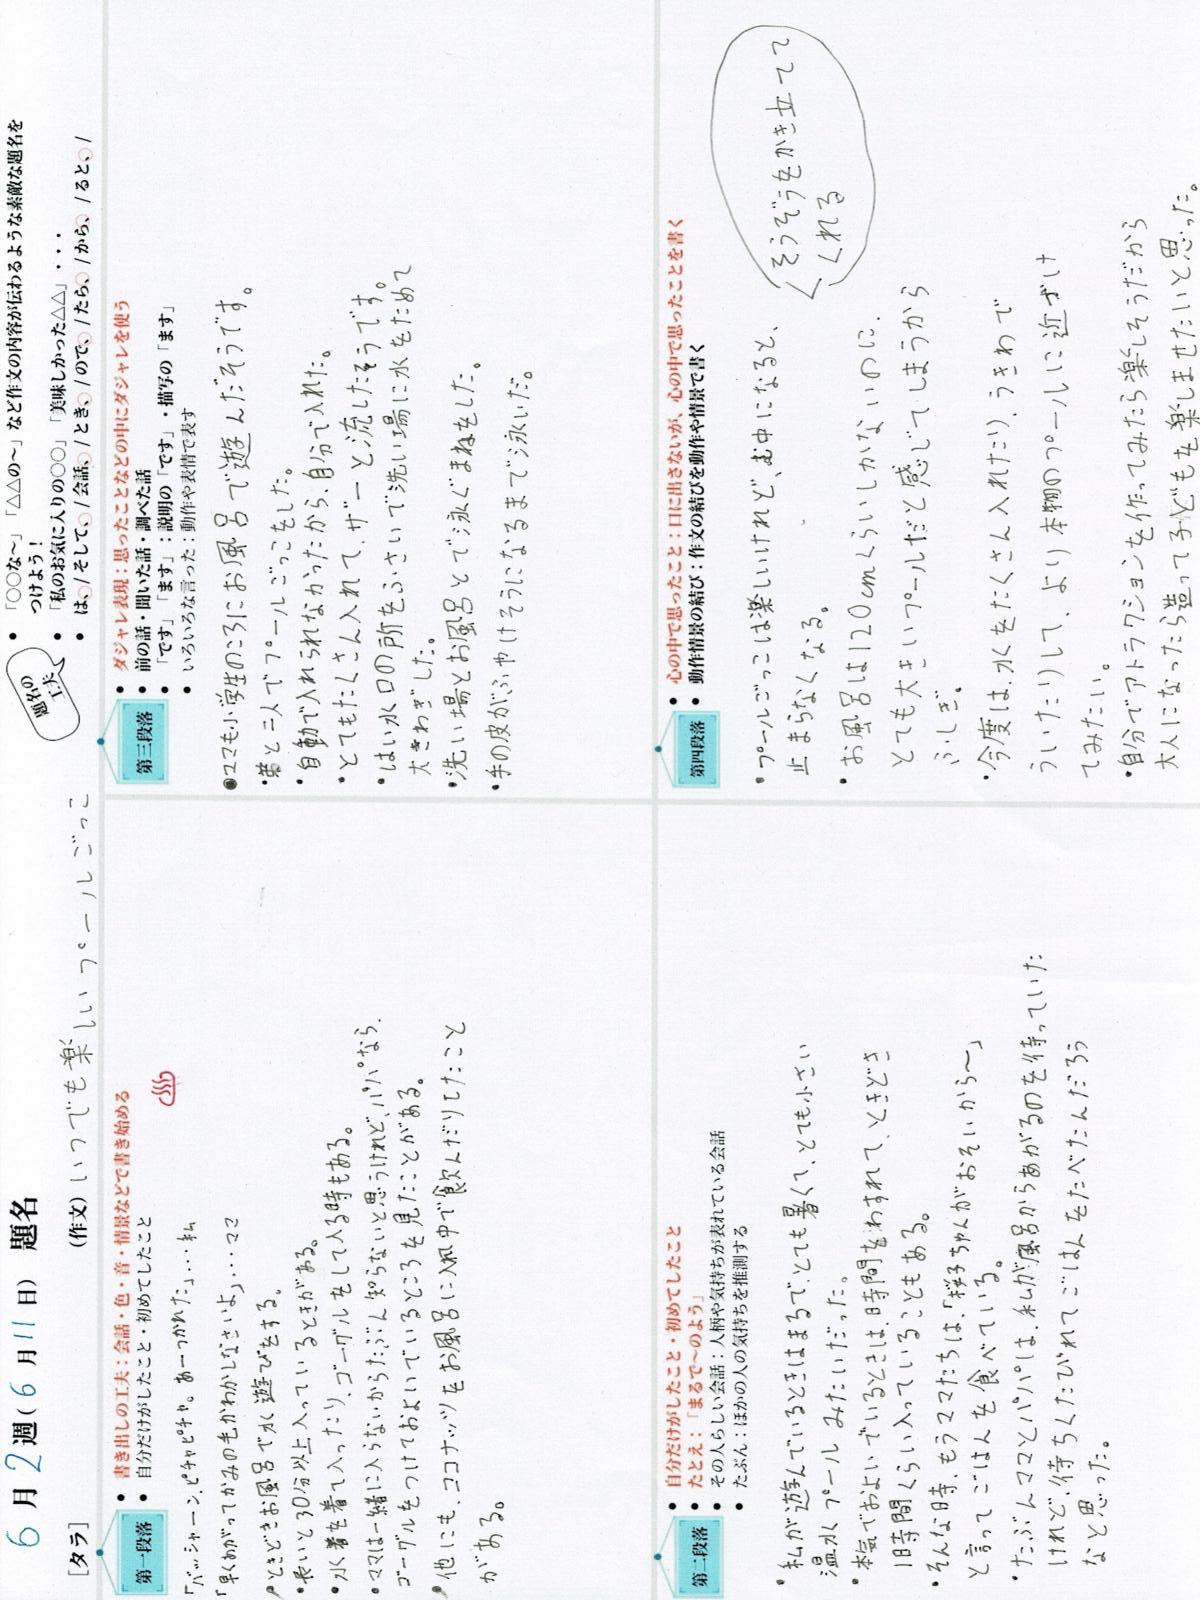 6月2週(6月11日) 題名
[タラ]
(作文) いつでも楽しいプールごっこ
題名の工夫
• 「○○な～」「△△の～」など作文の内容が伝わるような素敵な題名を
つけよう!
• 「私のお気に入りの○○」「美味しかった△△」・・・
• は、/そして、/会話、/とき、/ので、/たら、/から、/ると、/
第一段落
• 書き出しの工夫:会話・色・音・情景などで書き始める
• 自分だけがしたこと・初めてしたこと
♨
「バッシャーン、ピチャピチャ。あーつかれた」…私
「早くあがってかみの毛かわかしなさいよ」…ママ
•ときどきお風呂で水遊びをする。
•長いと30分以上入っているときがある。
•水着を着て入ったり、ゴーグルをして入る時もある。
•ママは一緒に入らないからたぶん知らないと思うけれど、パパなら、
ゴーグルをつけておよいでいるところを見たことがある。
•他にも、ココナッツをお風呂に入れ中で飲んだりしたこと
がある。
第二段落
• 自分だけがしたこと・初めてしたこと
• たとえ:「まるで～のよう」
• その人らしい会話:人柄や気持ちが表れている会話
• たぶん:ほかの人の気持ちを推測する
•私が遊んでいるときはまるで、とても暑くて、とても小さい
温水プールみたいだった。
•本気でおよいでいるときは、時間をわすれて、ときどき
1時間くらい入っていることもある。
•そんな時、もうママたちは、「桜子ちゃんがおそいから～」
と言ってごはんを食べている。
•たぶんママとパパは、私が風呂からあがるのを待っていた
けれど、待ちくたびれてごはんをたべたんだろう
なと思った。
第三段落
• ダジャレ表現:思ったことなどの中にダジャレを使う
• 前の話・聞いた話・調べた話
「です」「ます」:説明の「です」・描写の「ます」
• いろいろな言った:動作や表情で表す
•ママも小学生のころにお風呂で遊んだそうです。
•弟と二人でプールごっこをした。
•自動で入れられなかったから、自分で入れた。
•とてもたくさん入れて、ザーと流したそうです。
•はい水口の所をふさいで洗い場に水をためて
大さわぎした。
•洗い場とお風呂とで泳ぐまねをした。
•手の皮がふやけそうになるまで泳いだ。
第四段落
• 心の中で思ったこと:口に出さないが、心の中で思ったことを書く
• 動作情景の結び:作文の結びを動作や情景で書く
•プールごっこは楽しいけれど、む中になると、
止まらなくなる。
そうぞうをかき立てて
くれる
•お風呂は120cmくらいしかないのに、
とても大きいプールだと感じてしまうから
ふしぎ。
•今度は、水をたくさん入れたり、うきわで
ういたりして、より本物のプールに近づけ
てみたい。
•自分でアトラクションを作ってみたら楽しそうだから
大人になったら造って子どもを楽しませたいと思った。